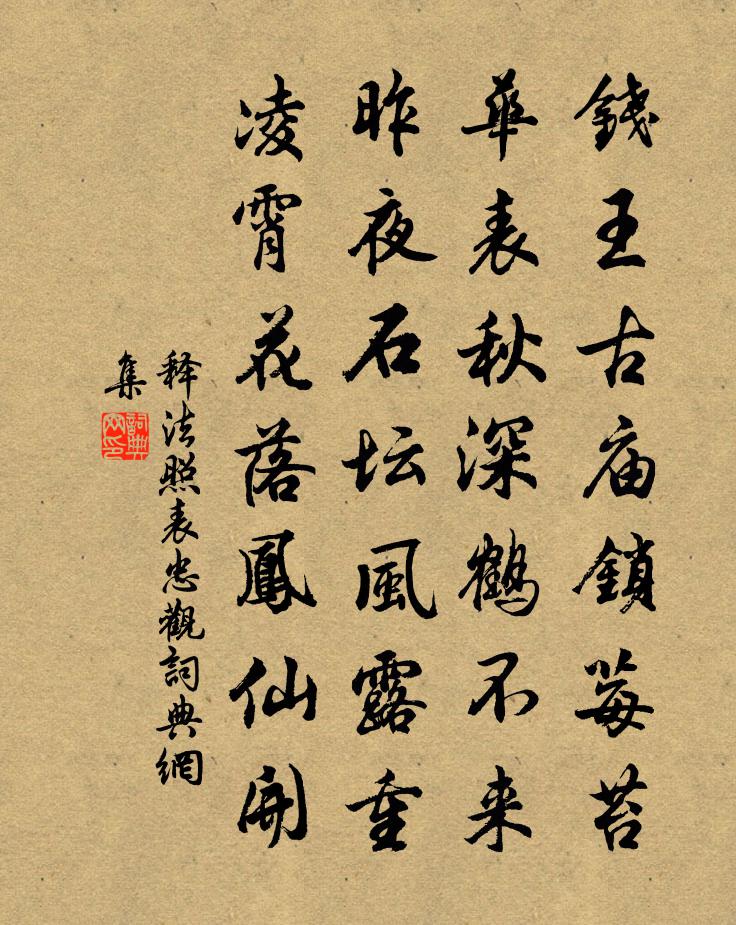 錢王古庙鎖莓苔
華表秋深鶴不来
昨夜石坛風露重
凌霄花落鳳仙開
释法照表忠觀詞典網
集
詞典
网印